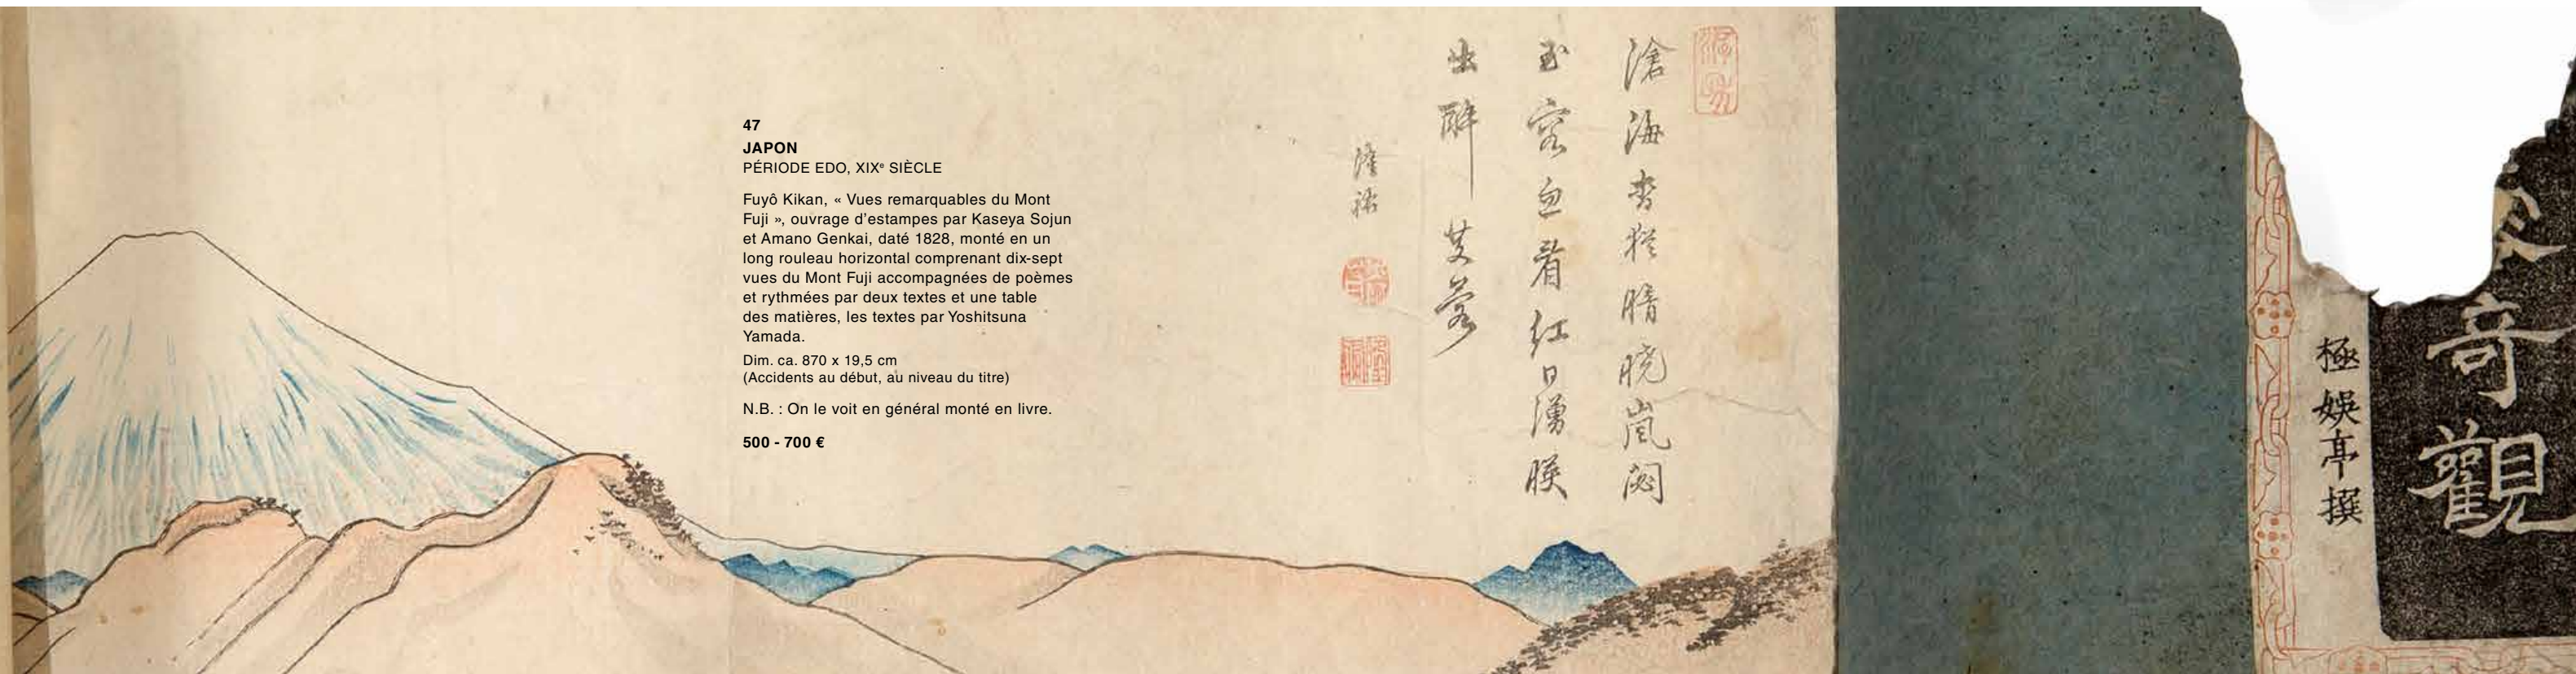 47
JAPON
PÉRIODE EDO, XIXᵉ SIÈCLE
Fuyô Kikan, « Vues remarquables du Mont
Fuji », ouvrage d’estampes par Kaseya Sojun
et Amano Genkai, daté 1828, monté en un
long rouleau horizontal comprenant dix-sept
vues du Mont Fuji accompagnées de poèmes
et rythmées par deux textes et une table
des matières, les textes par Yoshitsuna
Yamada.
Dim. ca. 870 x 19,5 cm
(Accidents au début, au niveau du titre)
N.B. : On le voit en général monté en livre.
500 - 700 €
奇觀
極娯亭撰
滄海杳猶暗曉嵐閟
玉容忽看紅日湧映
出醉芙蓉